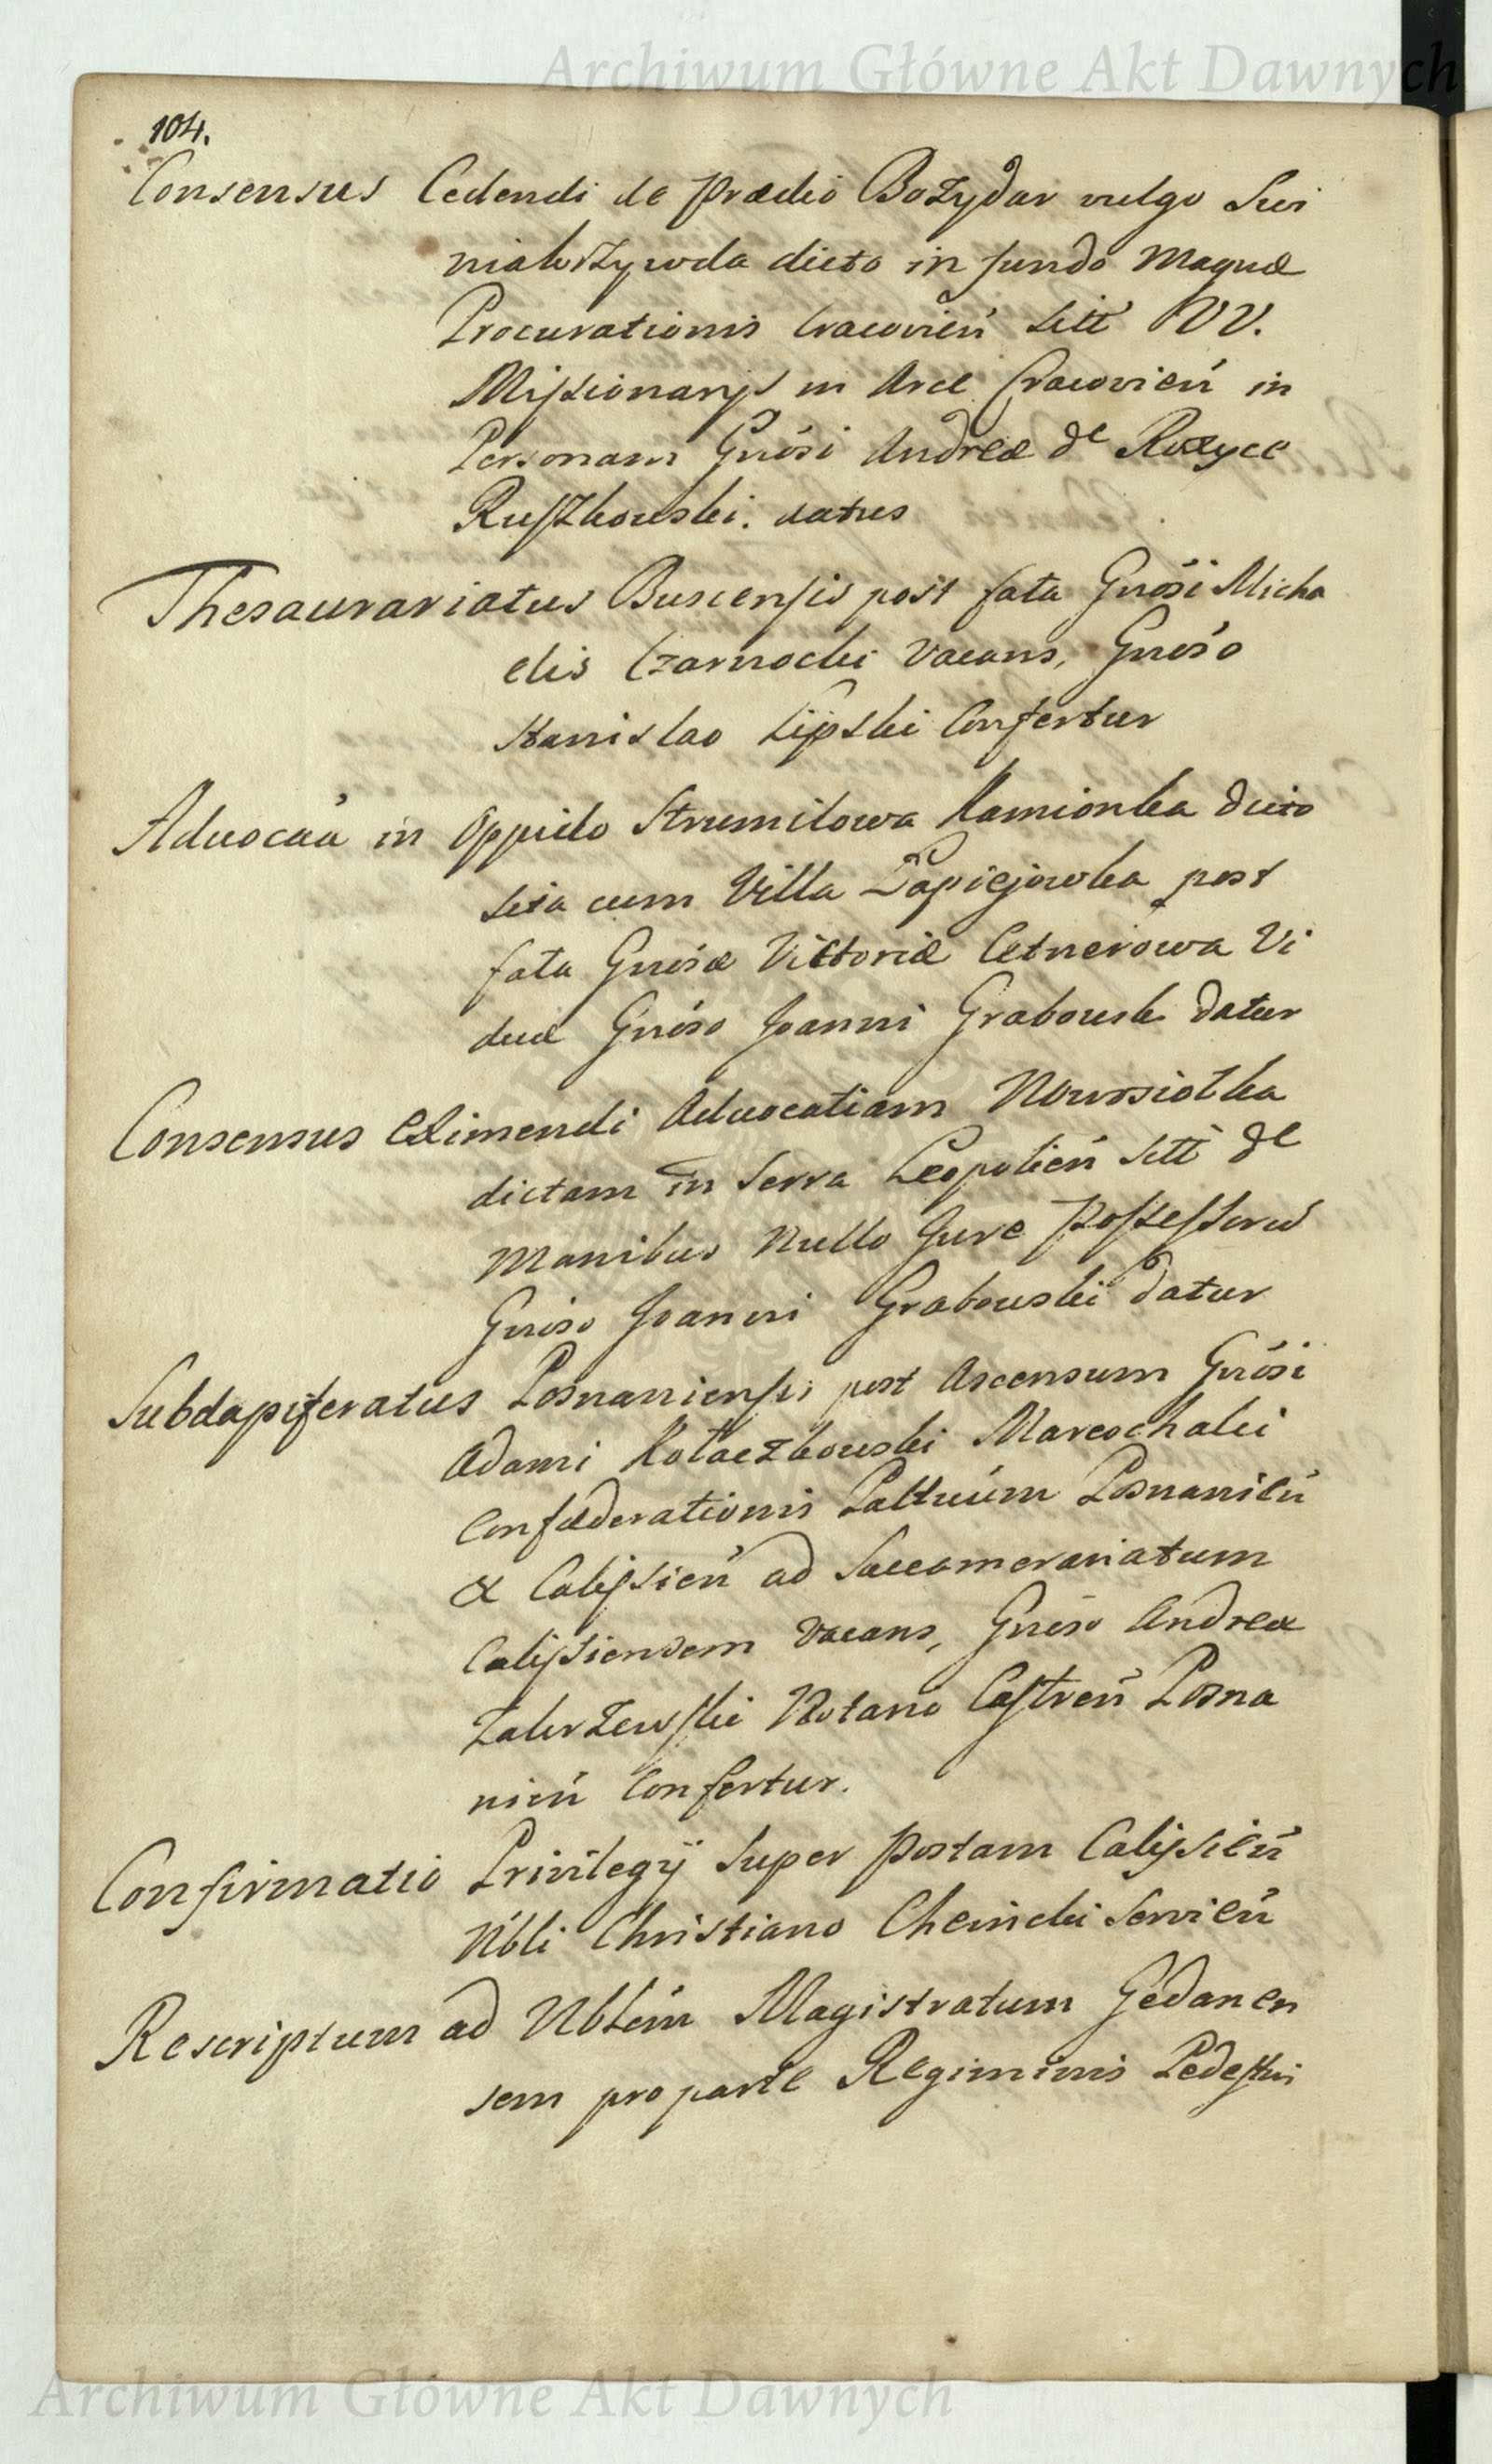 Archiwum Główne Akt Dawnych
104.
Consensus Cedendi de prædio Bożydar vulgo Swi
niakrzywda dicto in fundo Magnæ
Procurationis Cracovień sitt RV.
Missionarijs in Arce Cracovień in
Personam Gnósi Andreæ de Rozyce
Ruszkowski. datus
Thesaurariatus Buscensis post fata Gnósi Micha
elis Czarnocki vacans, Gnóso
Stanislao Lipski Confertur
Advocaã in Oppido Strumilowa Kamionka dicto
sita cum Villa Łapiejowka post
fata Gnósæ Victoriæ Cetnerowa Vi
duæ Gnóso Joanni Grabowski datur
Consensus Eximendi Advocatiam Nowosiołka
dictam in Terra Leopolień sitt de
manibus Nullo Jure Possessorũ
Gnóso Joanni Grabowski datur
Subdapiferatus Posnaniensis post Ascensum Gnósi
Adami Kołaczkowski Mareschalci
Confæderationis Palttuúm Posnanień
& Calissień ad Succamerariatum
Calissiensem vacans, Gnóso Andreæ
Zakrzewski Notario Castreń Posna
nień Confertur.
Confirmatio Privilegij super Postam Calissień
Nbli Christiano Cheinicki Servień
Rescriptum ad Nblém Magistratum Gedanen
sem pro parte Regiminis Pedestris
Archiwum Główne Akt Dawnych